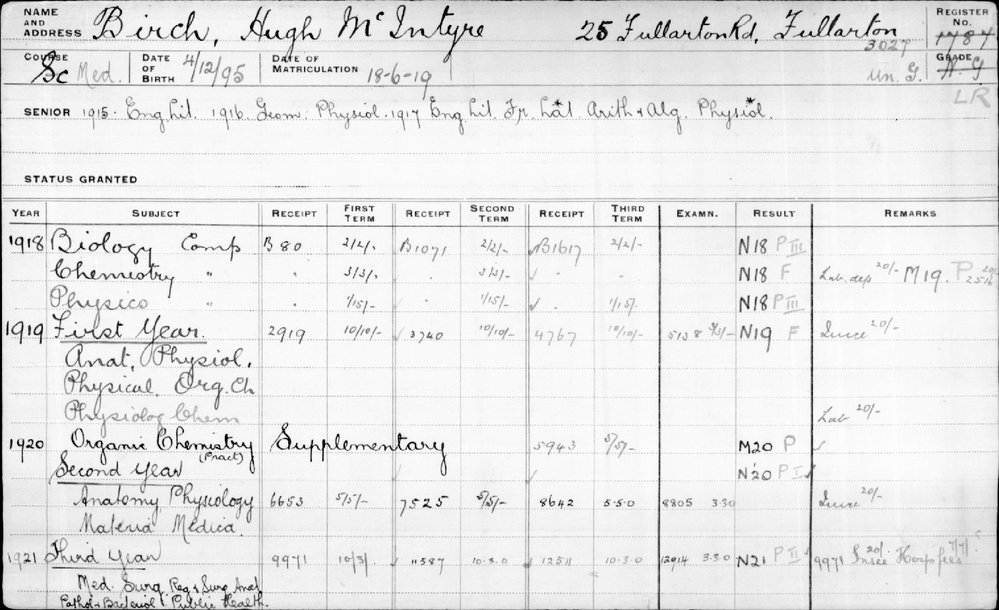 NAME AND ADDRESS Birch, Hugh McIntyre 25 Fullarton Rd, Fullarton REGISTER No. 1787
3027
COURSE Sc Med. DATE OF BIRTH 4/12/95 DATE OF MATRICULATION 18-6-19 Un. G. GRADE N.G
LR
SENIOR 1915. Eng Lit. 1916. Geom. Physiol. 1917 Eng Lit. Fr. Lat* Arith & Alg. Physiol.*
STATUS GRANTED
YEAR SUBJECT RECEIPT FIRST TERM RECEIPT SECOND TERM RECEIPT THIRD TERM EXAMN. RESULT REMARKS
1918 Biology Comp B 80 2/2/- B1071 2/2/- B1617 2/2/- N18 P III
Chemistry " " 3/3/- 3/3/- ✓ " N18 F Lab. dep 20/- M19. P
Physics " " 1/15/- 1/15/- ✓ " 1/15/- N18 P III
1919 First Year. 2919 10/10/- ✓ 3740 10/10/- 4767 10/10/- 5138 N19 F Insce 20/-
Anat, Physiol,
Physical, Org. Ch
Physiolog Chem Lab 20/-
1920 Organic Chemistry (Pract) Supplementary 5943 5/5/- M20 P ✓
Second Year ✓ ✓ N'20 P I
Anatomy Physiology 6653 5/5/- 7525 5/5/- 8642 5.5.0 8805 3.30 Insce 20/-
Materia Medica.
1921 Third Year 9971 10/3/. ✓ 11587 10.3.0 ✓ 12511 10.3.0 12914 3.3.0 N21 P II 9971 Insce 20/- Hosp fees 7/7/-
Med. Surg. Reg & Surg Anat
Pathol & Bacteriol & Public Health.